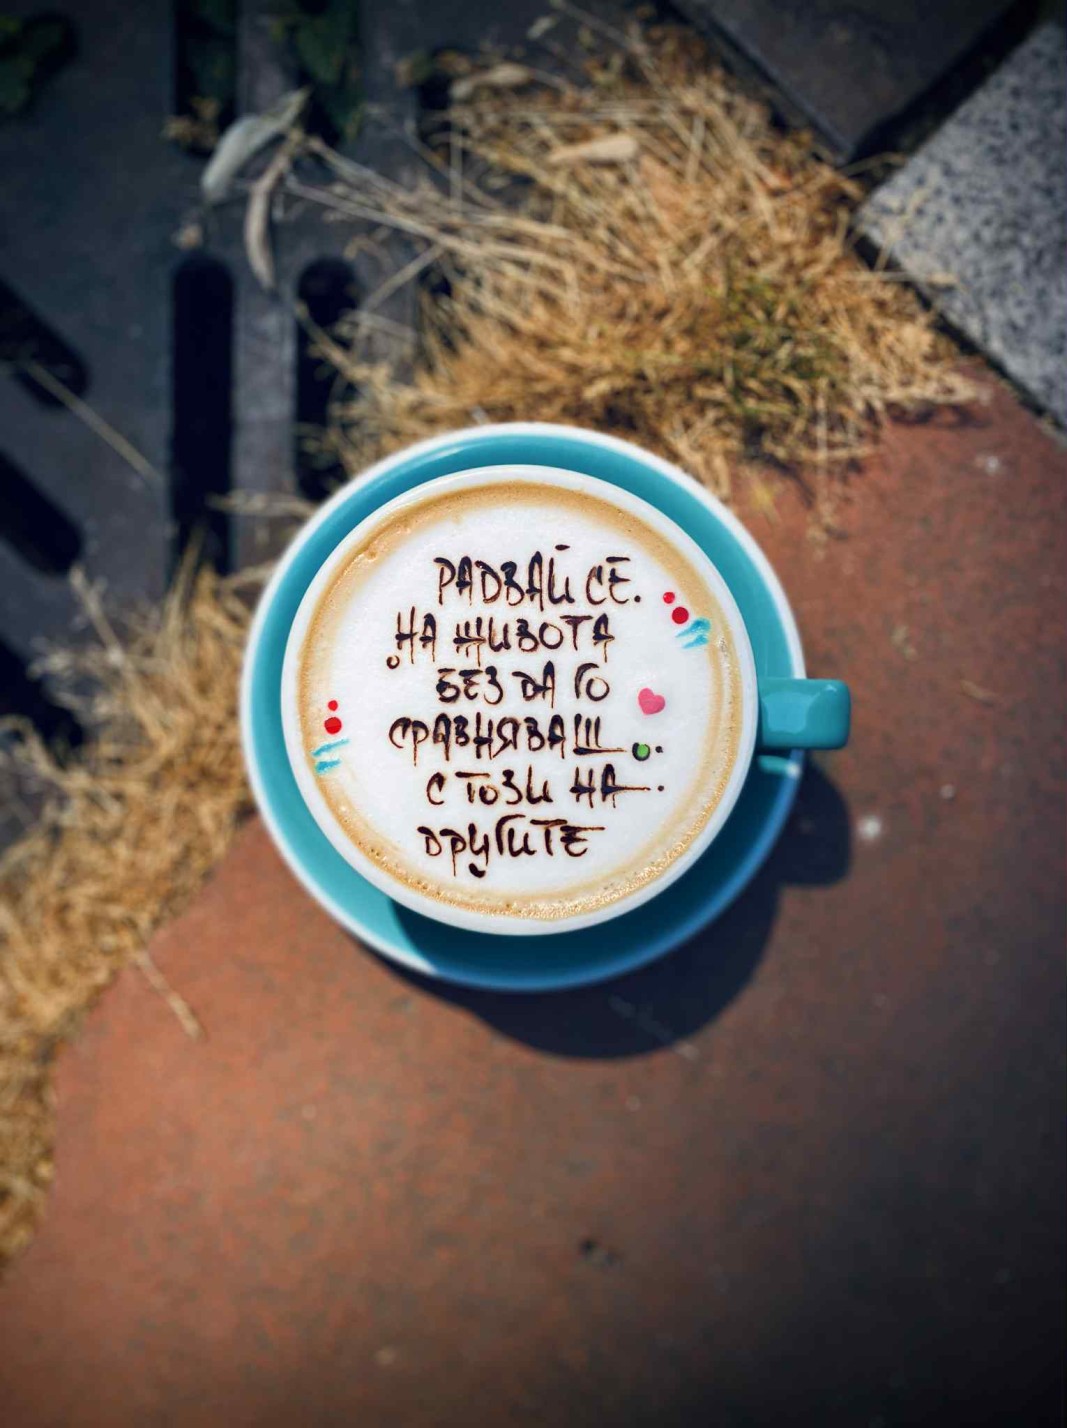 РАДВАЙ СЕ.
НА ЖИВОТА
БЕЗ ДА ГО
СРАВНЯВАШ
С ТОЗИ НА
ДРУГИТЕ